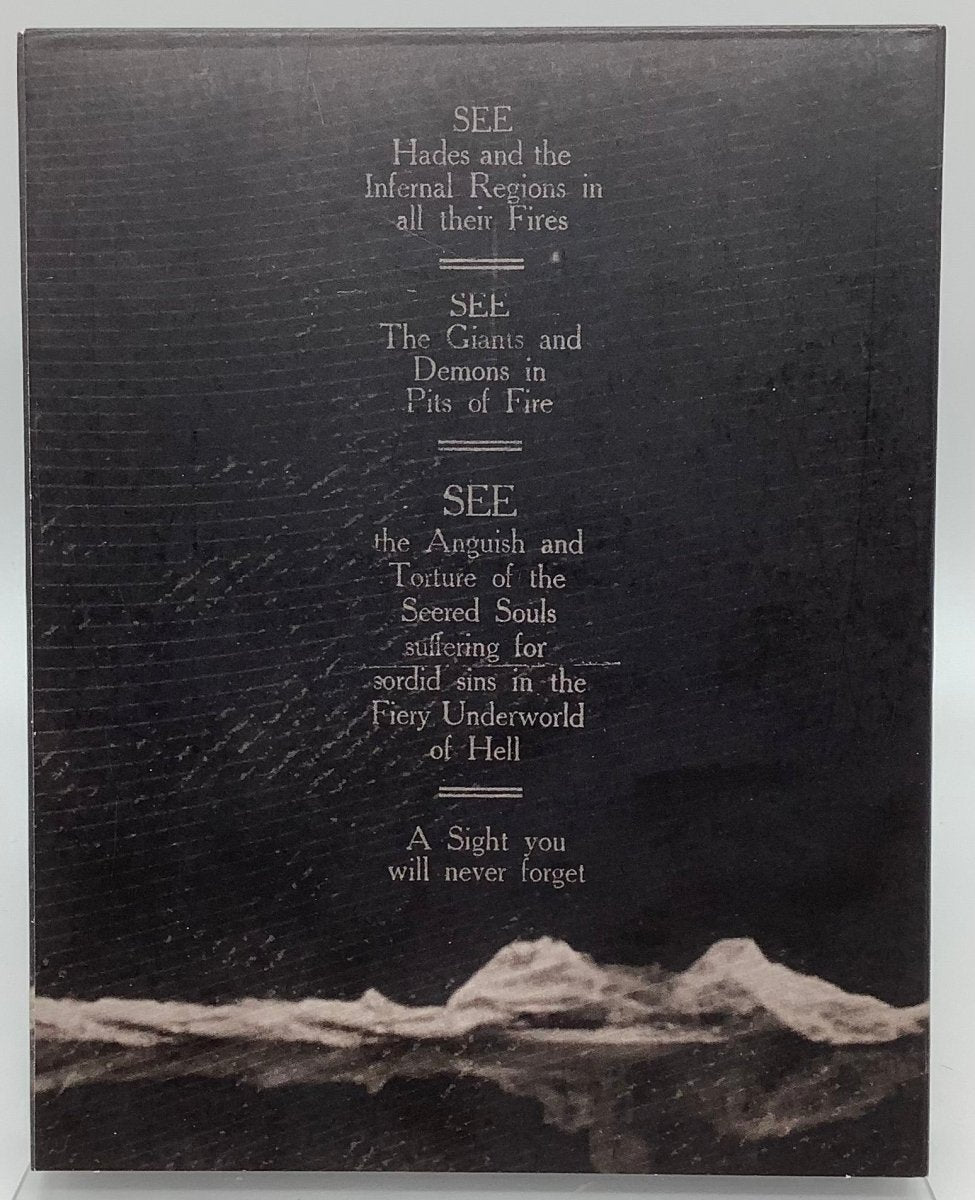 SEE
Hades and the
Infernal Regions in
all their Fires
SEE
The Giants and
Demons in
Pits of Fire
SEE
the Anguish and
Torture of the
Seered Souls
suffering for
sordid sins in the
Fiery Underworld
of Hell
A Sight you
will never forget